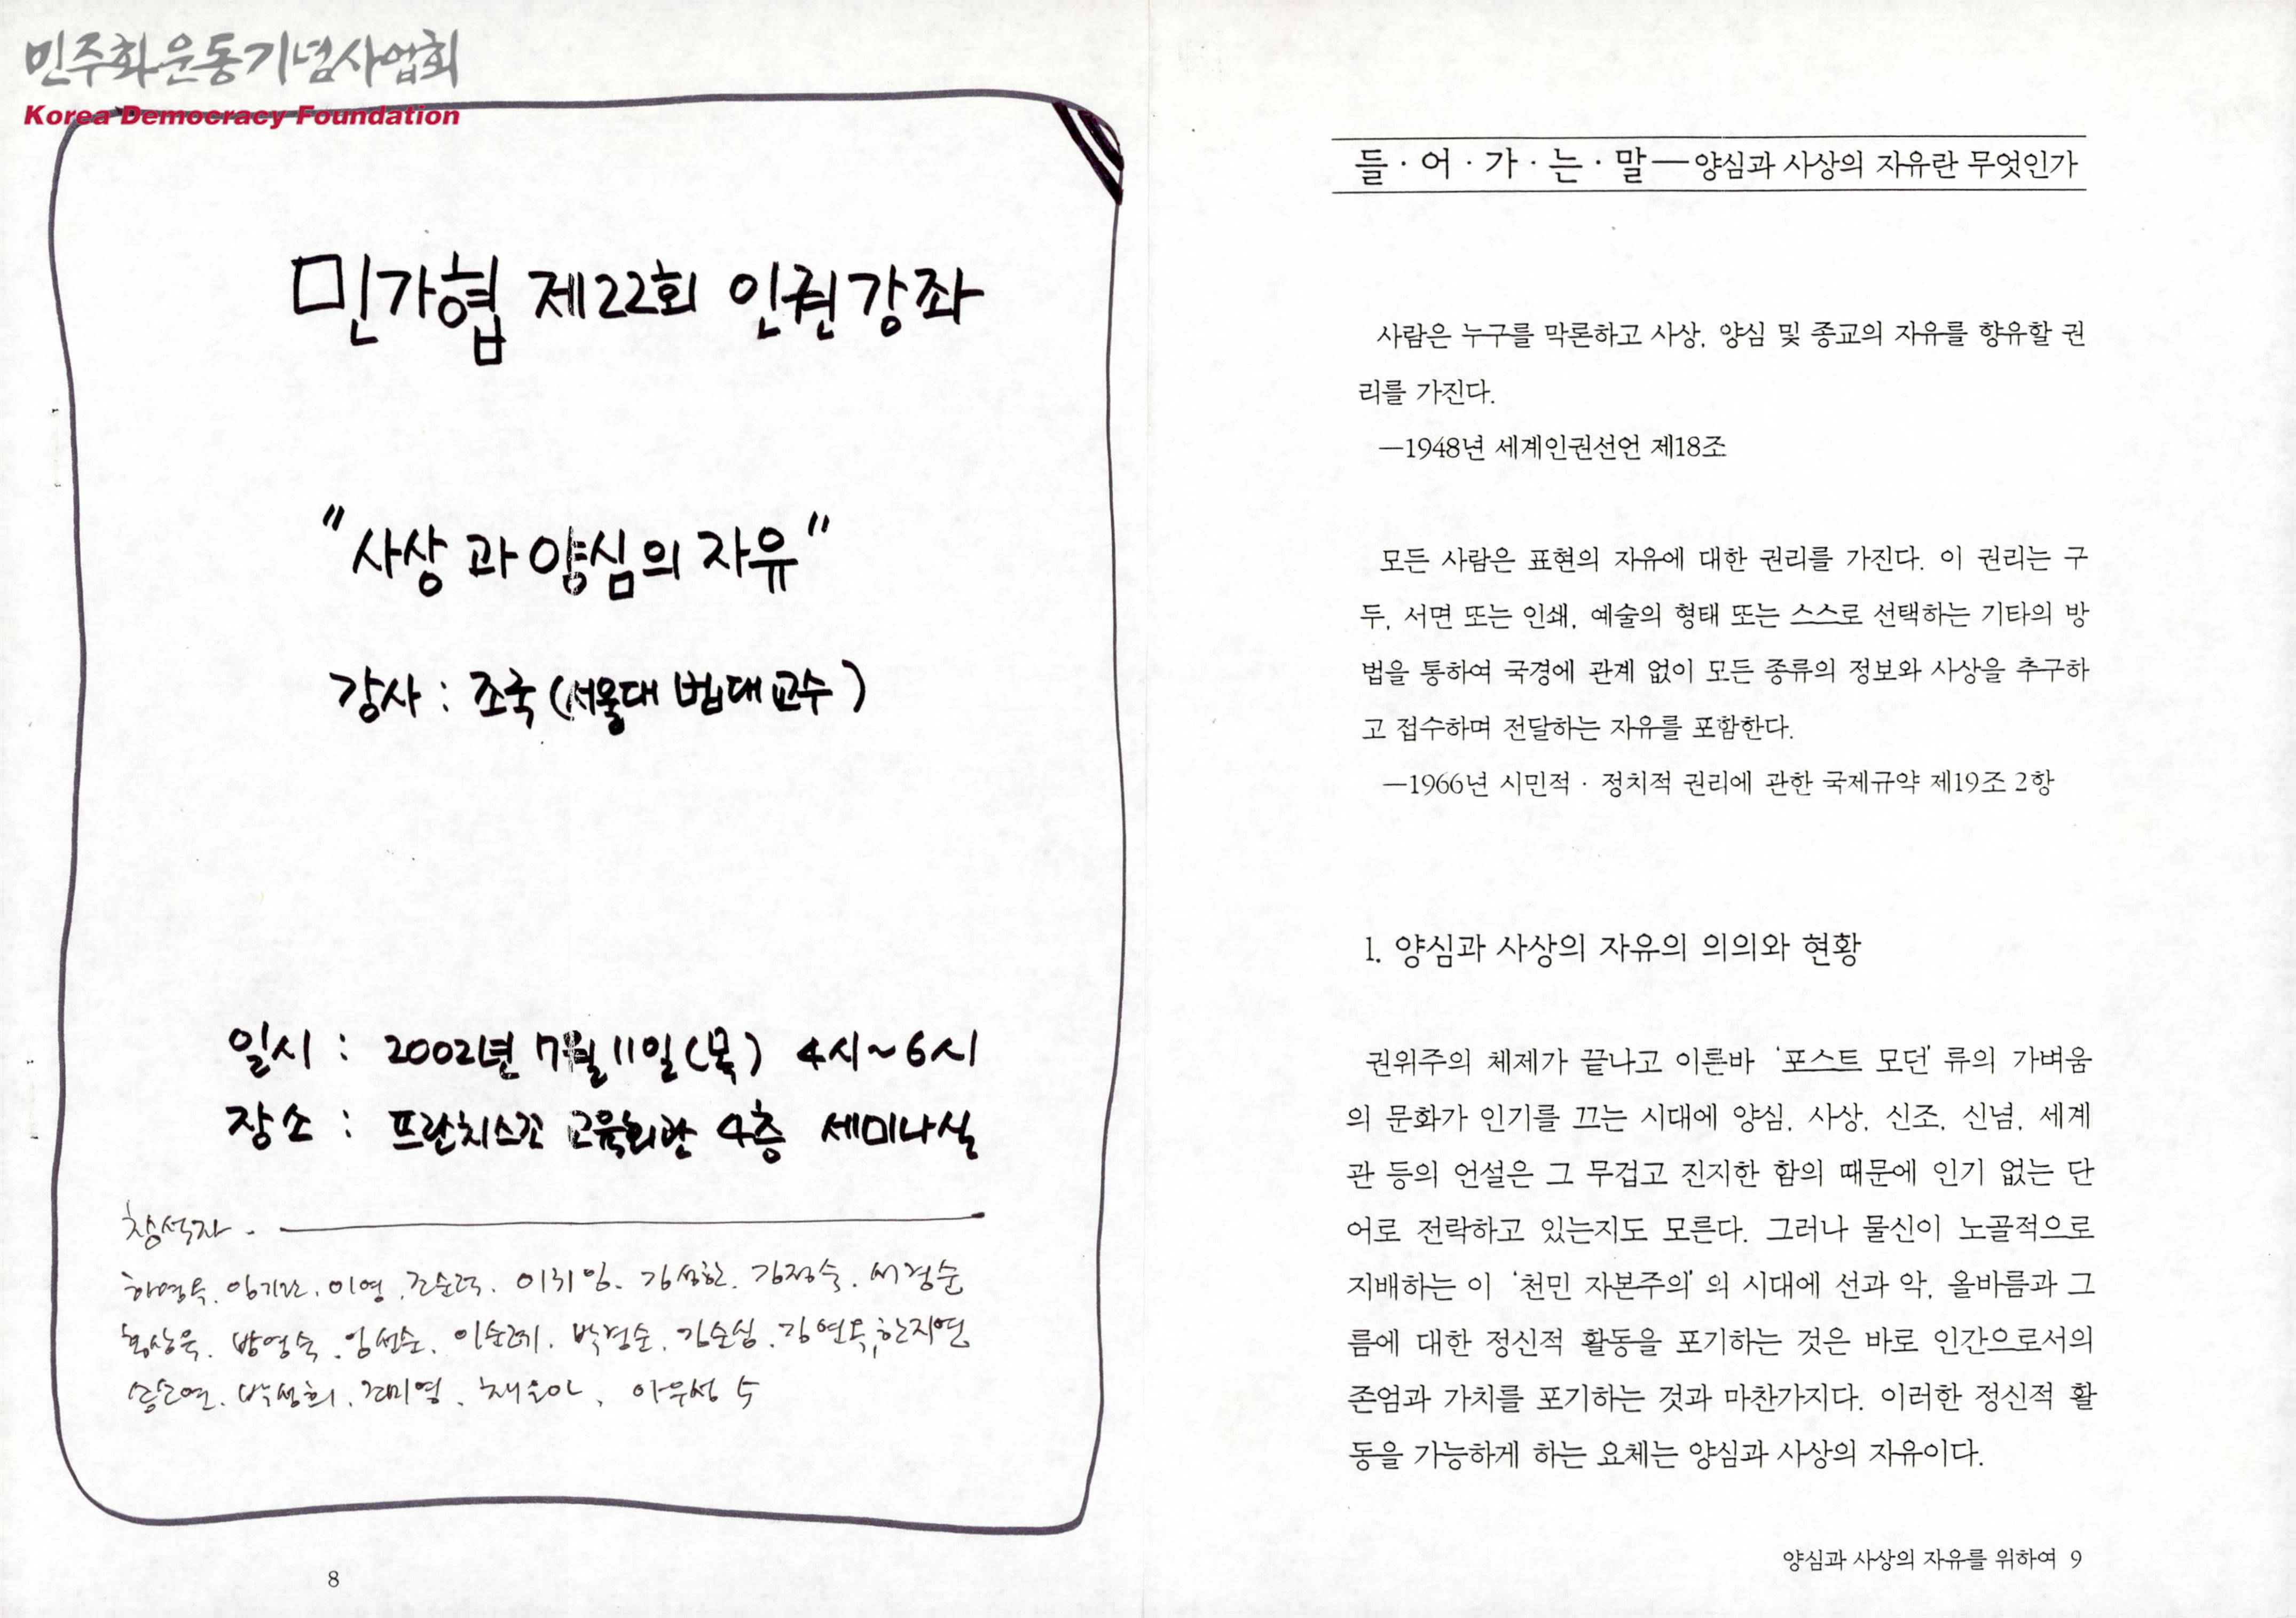 민주화운동기념사업회
Korea Democracy Foundation
민가협 제22회 인권강좌
"사상과 양심의 자유"
강사 : 조국 (서울대 법대 교수)
일시 : 2002년 7월 11일 (목) 4시~6시
장소 : 프란치스꼬 교육회관 4층 세미나실
참석자 -
이영. 김정숙. 서경순
방영숙. 임선순. 이순례. 박경순. 김순심. 한지연
박성희.
8
들·어·가·는·말—양심과 사상의 자유란 무엇인가
사람은 누구를 막론하고 사상, 양심 및 종교의 자유를 향유할 권
리를 가진다.
—1948년 세계인권선언 제18조
모든 사람은 표현의 자유에 대한 권리를 가진다. 이 권리는 구
두, 서면 또는 인쇄, 예술의 형태 또는 스스로 선택하는 기타의 방
법을 통하여 국경에 관계 없이 모든 종류의 정보와 사상을 추구하
고 접수하며 전달하는 자유를 포함한다.
—1966년 시민적 · 정치적 권리에 관한 국제규약 제19조 2항
1. 양심과 사상의 자유의 의의와 현황
권위주의 체제가 끝나고 이른바 '포스트 모던' 류의 가벼움
의 문화가 인기를 끄는 시대에 양심, 사상, 신조, 신념, 세계
관 등의 언설은 그 무겁고 진지한 함의 때문에 인기 없는 단
어로 전락하고 있는지도 모른다. 그러나 물신이 노골적으로
지배하는 이 '천민 자본주의' 의 시대에 선과 악, 올바름과 그
름에 대한 정신적 활동을 포기하는 것은 바로 인간으로서의
존엄과 가치를 포기하는 것과 마찬가지다. 이러한 정신적 활
동을 가능하게 하는 요체는 양심과 사상의 자유이다.
양심과 사상의 자유를 위하여 9